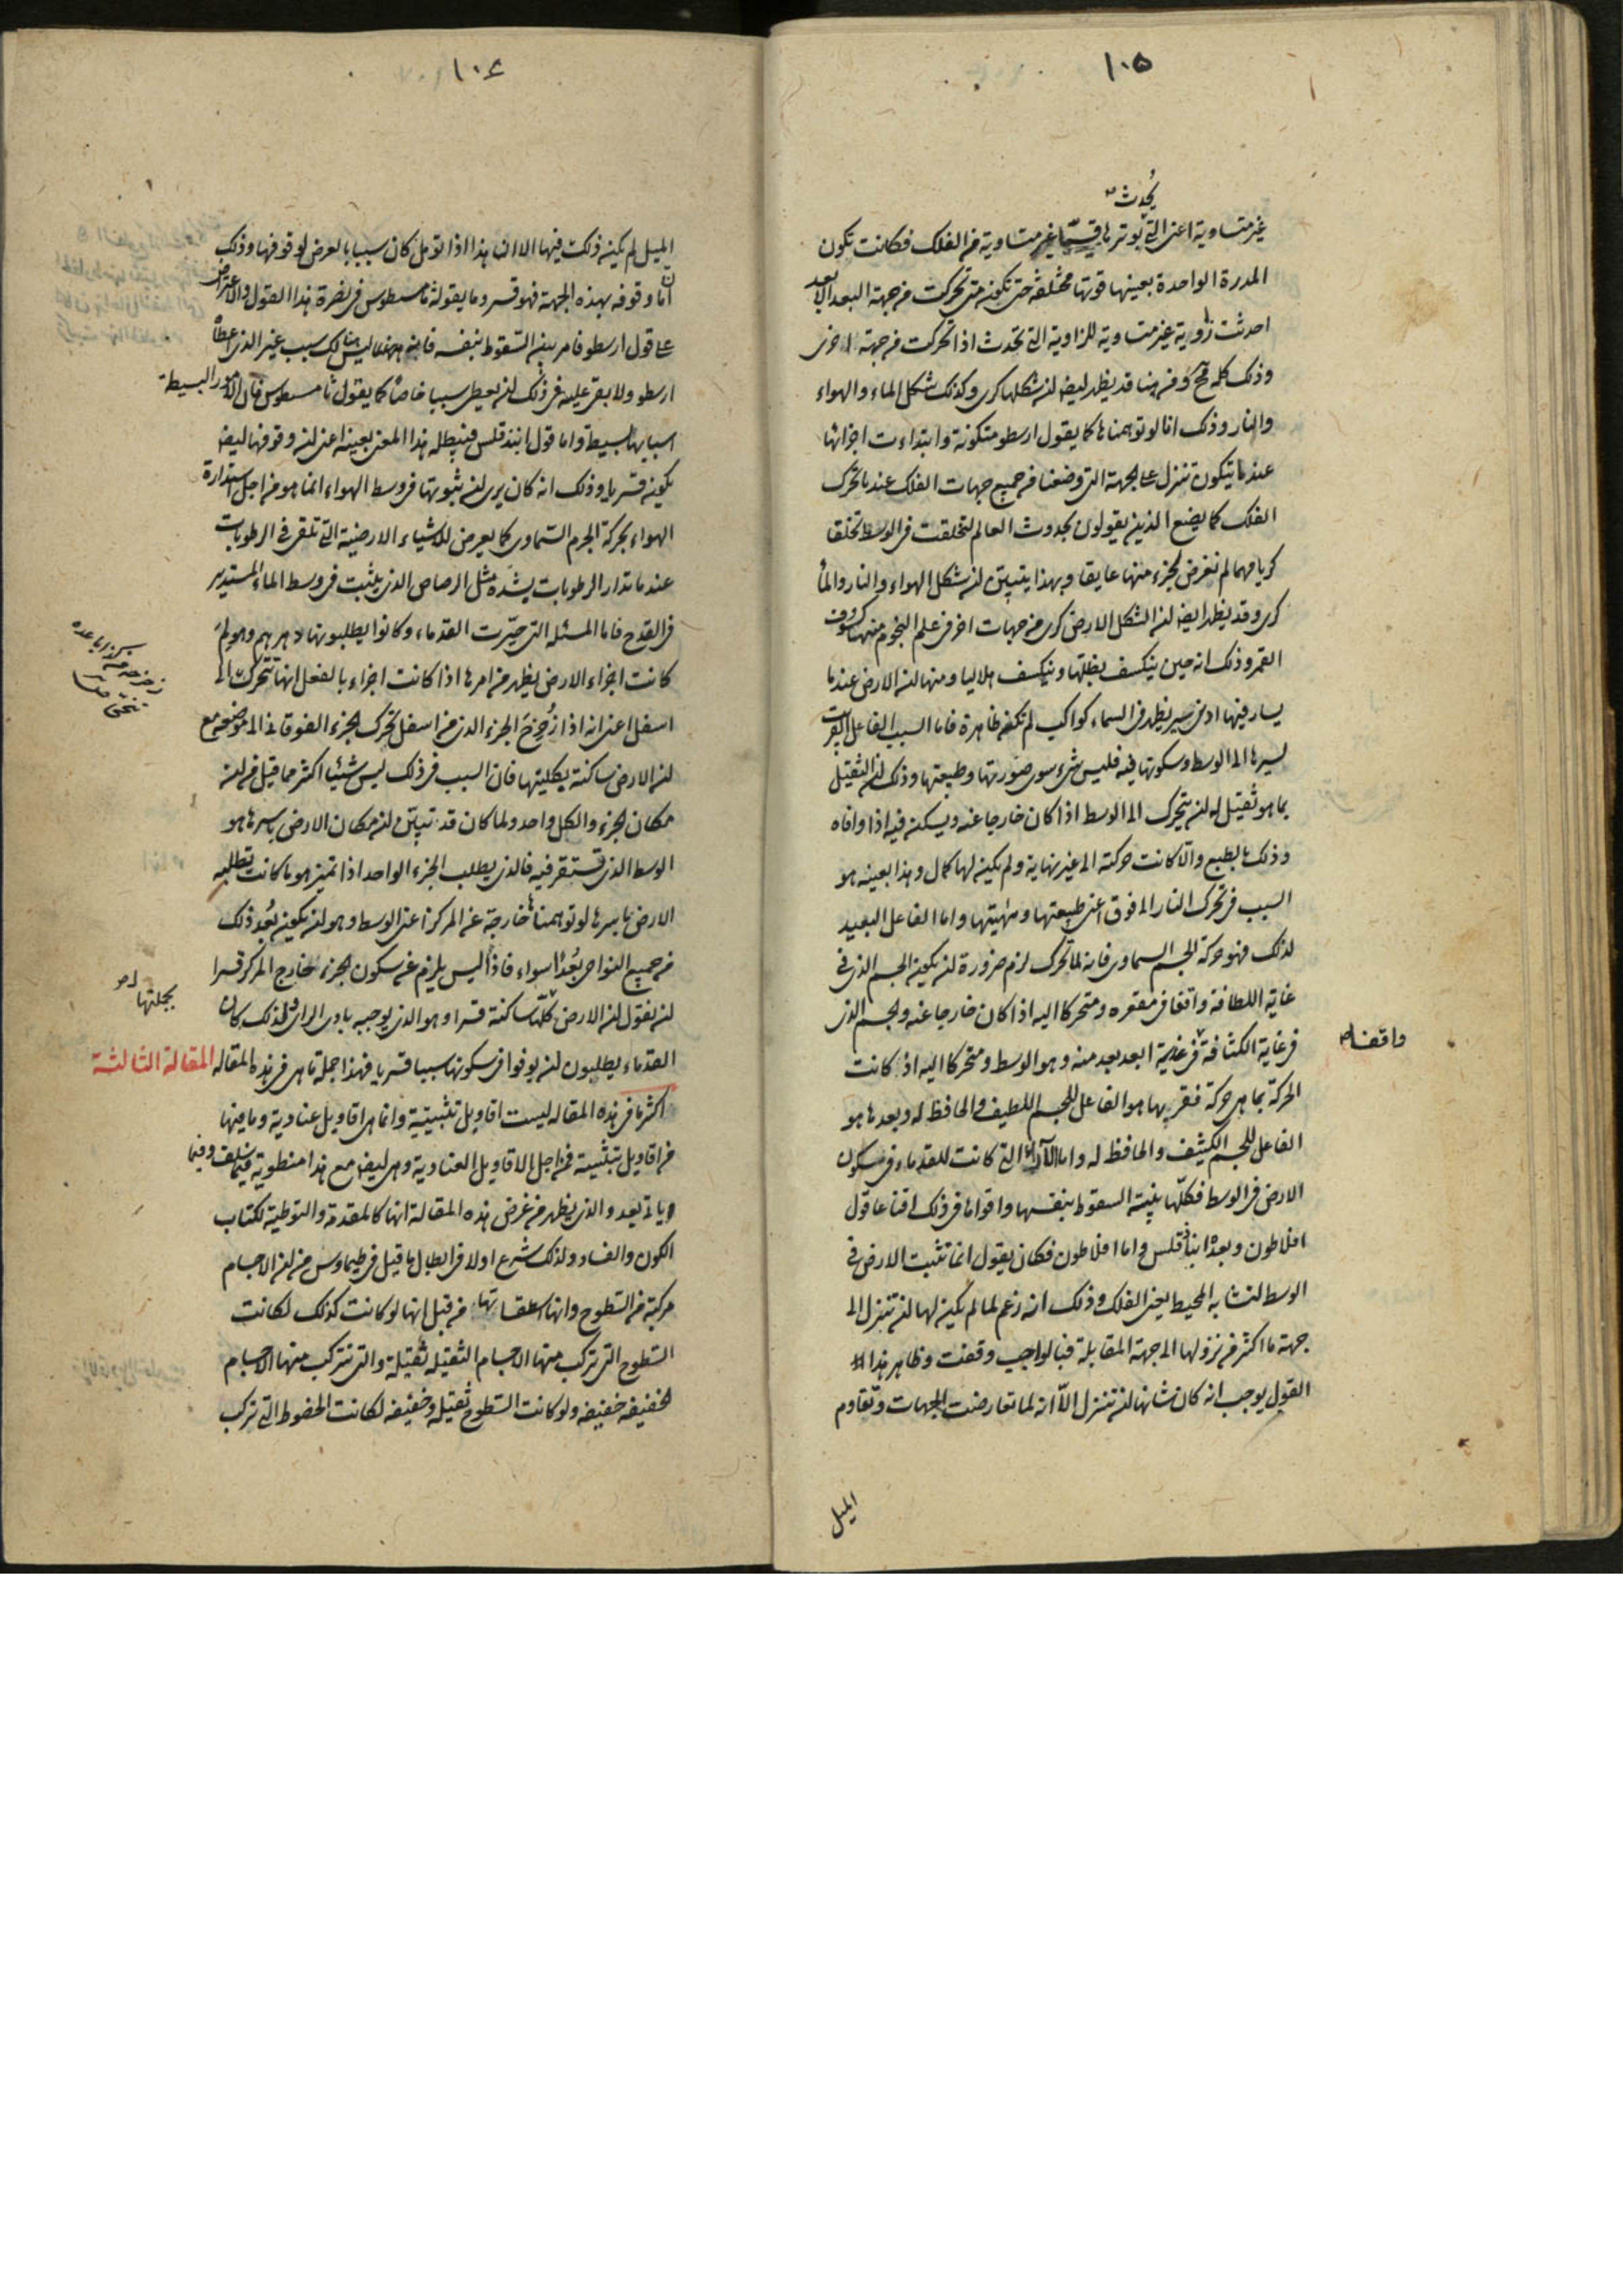 ١٠٥
يُحدث
غير متساوية اعنى التى يوترها قسيّا غير متساوية من الفلك فكانت تكون
المدرة الواحدة بعينها قوتها مختلفة حتى تكون متى تحركت من جهة البعد الابعد
احدثت زاوية غير متساوية للزاوية التى تحدث اذا تحركت من جهة اخرى
وذلك كله قبيح ومن هنا قد يظهر ايضا ان شكلها كرى وكذلك شكل الماء والهواء
والنار وذلك انا لو توهمناها كما يقول ارسطو متكونة وابتداءت اجزائها
عندما يتكون تنزل على الجهة التى وضعنا من جميع جهات الفلك عندما تحرك
الفلك كما يضع الذين يقولون بحدوث العالم لتخلقت فى الوسط تخلقا
كريا مهما لم نفرض لجزء منها عايقا وبهذا يتبين ان شكل الهواء والنار والماء
كرى وقد يظهر ايضا ان الشكل الارض كرى من جهات اخر فى علم النجوم منها كسوف
القمر وذلك انه حين ينكسف بظلها وينكسف هلاليا ومنها ان الارض عندما
يسار فيها ادنى سير يظهر فى السماء كواكب لم تكن ظاهرة فاما السبب الفاعل القريب
لسيرها الى الوسط وسكونها فيه فليس شىء سوى صورتها وطبيعتها وذلك ان الثقيل
بما هو ثقيل له ان يتحرك الى الوسط اذا كان خارجا عنه ويسكن فيه اذا وافاه
وذلك بالطبع والّا كانت حركته الى غير نهاية ولم يكن لها كمال وهذا بعينه هو
السبب فى تحرك النار الى فوق اعنى طبيعتها ومهيتها واما الفاعل البعيد
لذلك فهو حركة الجسم السماوى فانه لما تحرك لزم ضرورة ان يكون الجسم الذى فى
غاية اللطافة واقفا فى مقعره ومتحركا اليه اذا كان خارجا عنه والجسم الذى
فى غاية الكثافة فى غاية ابعد بعد منه وهو الوسط ومتحركا اليه اذ كانت
واقفا
الحركة بما هى حركة فقربها هو الفاعل للجسم اللطيف والحافظ له وبعدها هو
الفاعل للجسم الكثيف والحافظ له واما الآراء التى كانت للقدماء فى سكون
الارض فى الوسط فكلها بينة السقوط بنفسها واقواها فى ذلك اقناعا قول
افلاطون وبعده ابنادقلس واما افلاطون فكان يقول انما تثبت الارض فى
الوسط لتشابه المحيط يعنى الفلك وذلك انه زعم لما لم يكن لها ان تنزل الى
جهة ما اكثر من نزولها الى جهة المقابلة فبالواجب وقفت وظاهر هذا
القول يوجب انه كان شانها ان تنزل الّا انه لما تعارضت الجهات وتقاوم
الميل
١٠٦
الميل لم يكن ذلك فيها الا ان هذا اذا تومل كان سببا بالعرض لوقوفها وذلك
ان ما وقوفه بهذه الجهة فهو قسر وما يقوله ثامسطيوس فى نصرة هذا القول والاعتراض
على قول ارسطو فامر بين السقوط بنفسه فانه ليس هنالك سبب غير الذى اعطاه
ارسطو ولا بقى عليه فى ذلك ان يعطى سببا خاصا كما يقول ثامسطيوس فان الامور البسيطة
اسبابها بسيطة واما قول ابنذقلس فيبطله هذا المعنى بعينه اعنى ان وقوفها ايضا
يكون قسريا وذلك انه كان يرى ان ثبوتها فى وسط الهواء انما هو من اجل استدارة
الهواء بحركة الجرم السماوى كما يعرض للاشياء الارضية التى تلقى فى الرطوبات
عندما تدار الرطوبات بشدّة مثل الرصاص الذى يثبت فى وسط الماء المستدير
فى القدح فاما المسئلة التى حيّرت القدماء وكانوا يطلبونها دهرهم وهو لم
كانت اجزاء الارض يظهر من امرها اذا كانت اجزاء بالفعل انها تتحرك الى
زحزحه عن كذا باعده
فتنحى
اسفل اعنى انه اذا زُحزح الجزء الذى من اسفل تحرك الجزء الفوقانى الى موضعه مع
ان الارض ساكنة بكليتها فان السبب فى ذلك ليس شيئا اكثر مما قيل من ان
مكان الجزء والكل واحد ولما كان قد تبيّن ان مكان الارض باسرها هو
الوسط الذى تستقر فيه فالذى يطلب الجزء الواحد اذا تميز هو ما كانت تطلبه
الارض باسرها لو توهمناها خارجة عن المركز اعنى الوسط وهو ان يكون بُعد ذلك
من جميع النواحى بُعدا سواء فاذا ليس يلزم عن سكون الجزء خارج المركز قسرا
بجملتها
ان نقول ان الارض كلّها ساكنة قسرا وهو الذى يوجبه بادى الراى ولذلك كان
القدماء يطلبون ان يوفوا فى سكونها سببا قسريا فهذا جملة ما هى فى هذه المقاله المقالة الثالثة
اكثر ما فى هذه المقاله ليست اقاويل تثبيتية وانما هى اقاويل عنادية وما فيها
من اقاويل تثبيتية فمن اجل الاقاويل العنادية وهى ايضا مع هذا منطوية فيما سلف وفيما
ياتى بعد والذى يظهر من غرض هذه المقالة انها كالمقدمة والتوطية لكتاب
الكون والفساد ولذلك شرع اولا فى ابطال ما قيل فى طيماوس من ان الاجسام
مركبة من السطوح وانها اسطقساتها من قبل انها لو كانت كذلك لكانت
السطوح التى تركب منها الاجسام الثقيلة ثقيلة والتى تتركب منها الاجسام
الخفيفة خفيفة ولو كانت السطوح ثقيلة وخفيفه لكانت الخطوط التى تركب